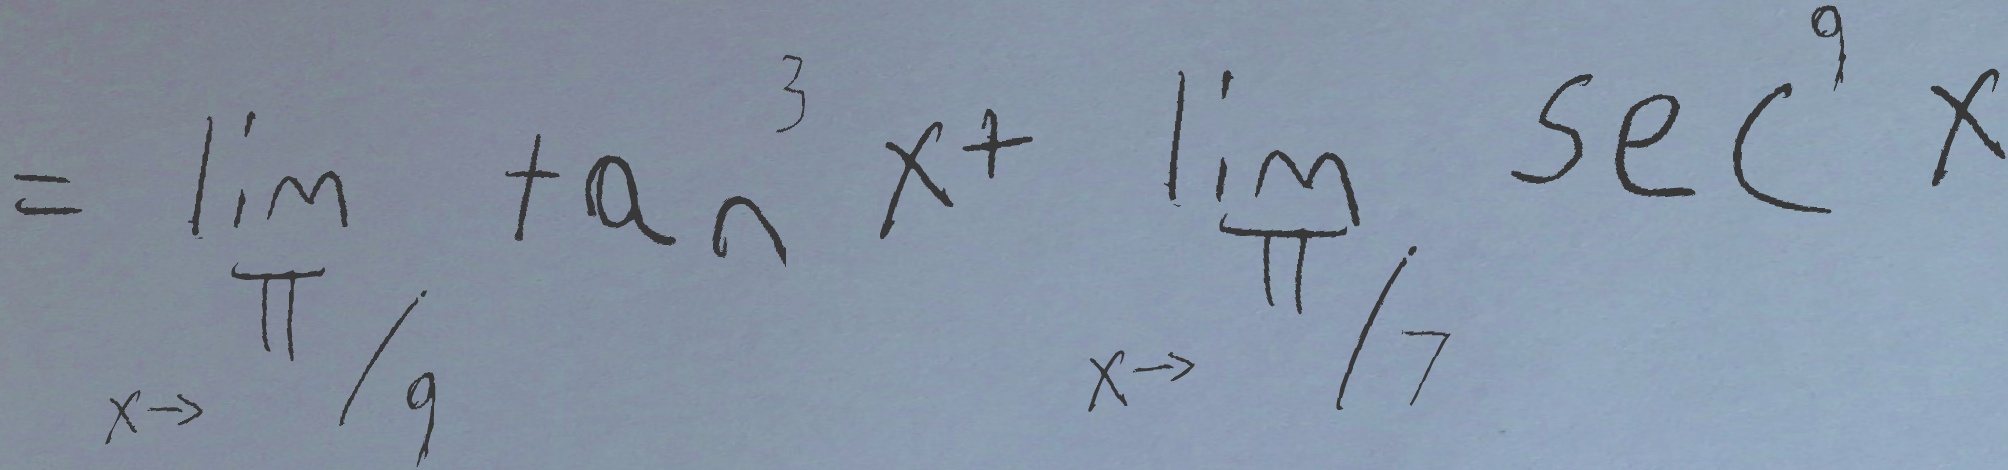 = lim_{x→π/9} tan³ x + lim_{x→π/7} sec⁹ x